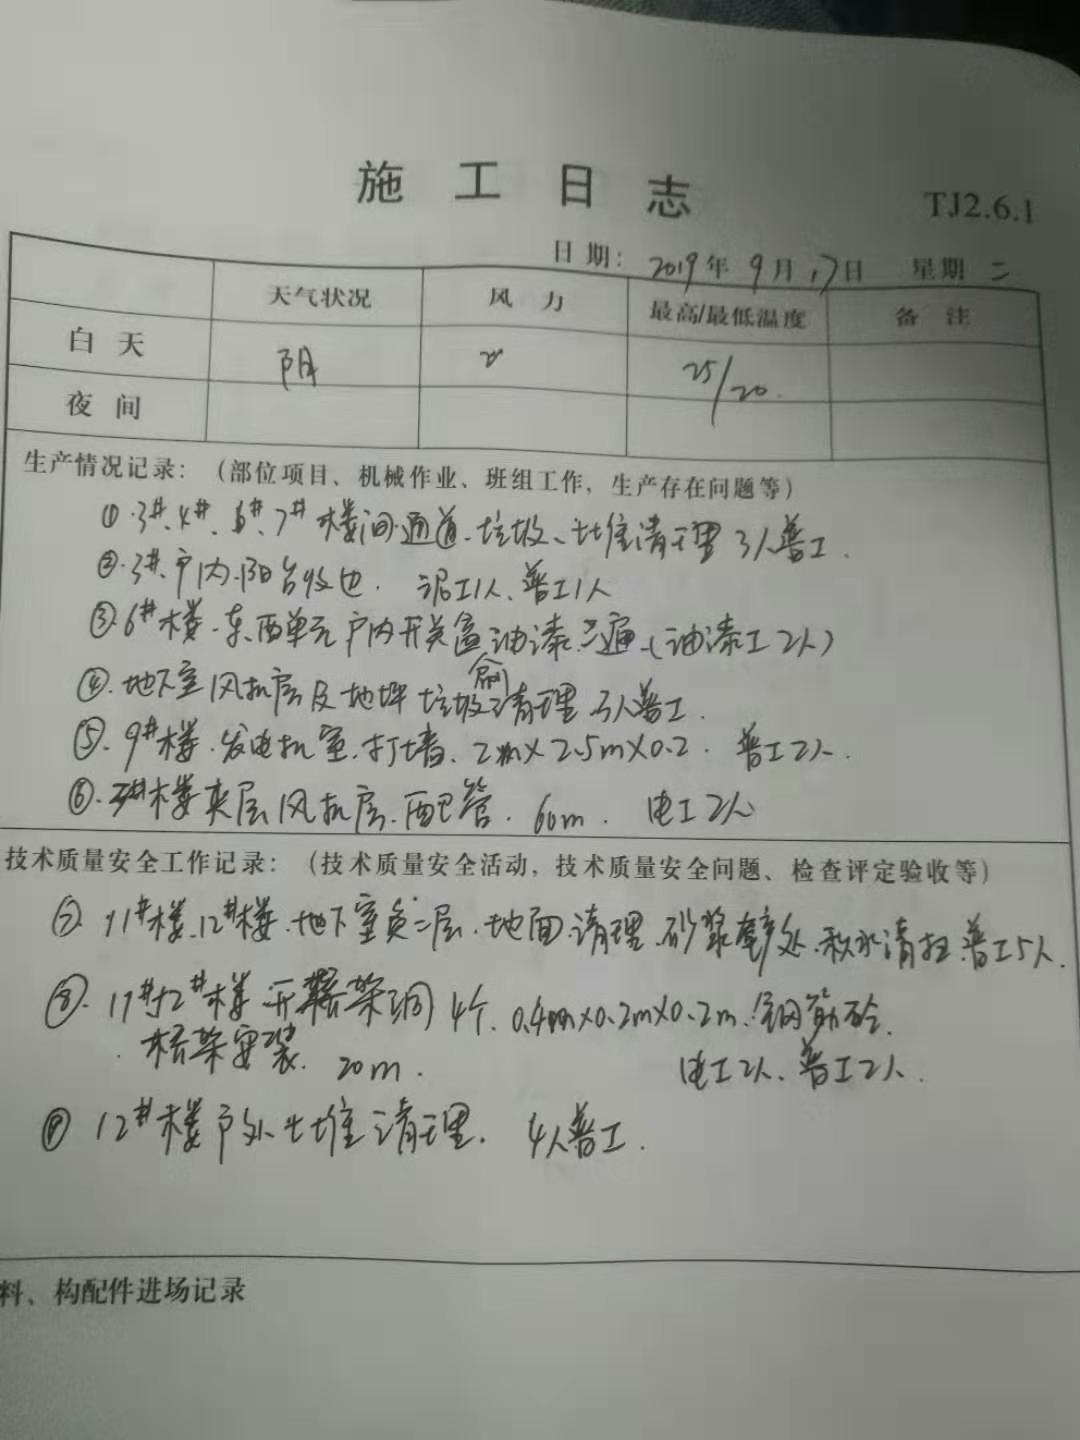 施工日志
TJ2.6.1
日期：2019年9月17日 星期二
天气状况 风力 最高/最低温度 备注
白天 阴 25/20
夜间
生产情况记录：（部位项目、机械作业、班组工作，生产存在问题等）
①.3#、4#、6#、7#楼间通道.垃圾、土堆清理 3人普工.
②.3#.户内.阳台收边. 泥工1人、普工1人
③.6#楼.东、西单元户内开关盒油漆.三遍.(油漆工2人)
④.地下室风机房及地坪垃圾清理.3人普工.
⑤.9#楼.发电机室.打墙. 2m×2.5m×0.2. 普工2人.
⑥.楼夹层风机房.配管. 60m. 电工2人
技术质量安全工作记录：（技术质量安全活动，技术质量安全问题、检查评定验收等）
⑦ 11#楼、12#楼.地下室负二层.地面清理.砂浆 处.积水清扫.普工5人.
⑧. 11#12#楼开桥架洞4个. 0.4m×0.2m×0.2m.钢筋砼.
桥架安装. 20m. 电工2人、普工2人.
⑨ 12#楼户外土堆清理. 4人普工.
料、构配件进场记录